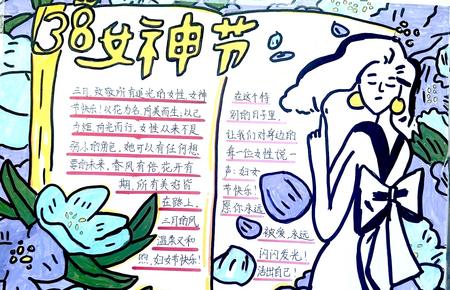 38女神节
三月，致敬所有追光的女性，女神
节快乐！以花为名，向美而生；以己
为炬，向光而行。女性从来不是
弱小的角色，她可以有任何想
要的未来，春风有信，花开有
期，所有美好皆
在路上。
三月的风
温柔又和
煦，妇女节快乐！
在这个特
别的日子里，
让我们对身边的
每一位女性说一
声：妇女
节快乐！
愿你永远
被爱，永远
闪闪发光！
活出自己！